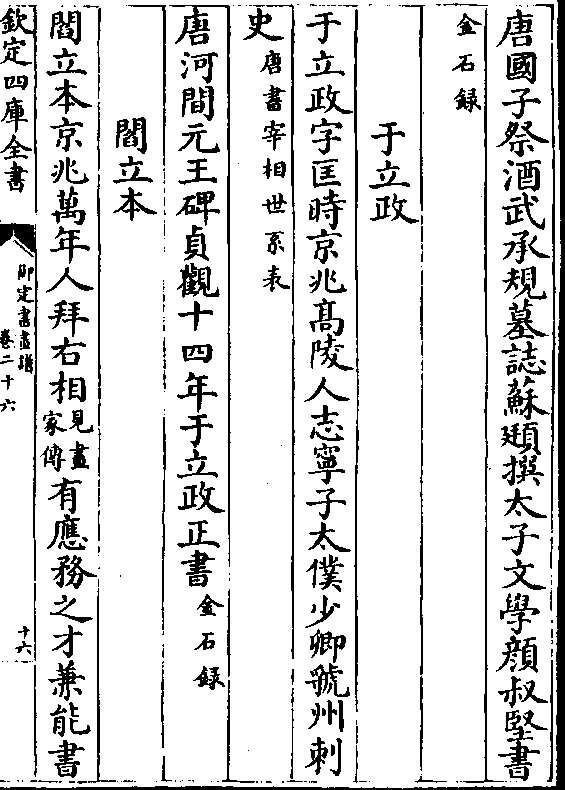 唐國子祭酒武承規墓誌蘇頲撰太子文學顔叔堅書
金石録
于立政
于立政字匡時京兆髙陵人志寧子太僕少卿虢州刺
史唐書宰相世系表
唐河間元王碑貞觀十四年于立政正書金石録
閻立本
閻立本京兆萬年人拜右相見畫家傳有應務之才兼能書
欽定四庫全書
御定書畫譜
卷二十六
十六